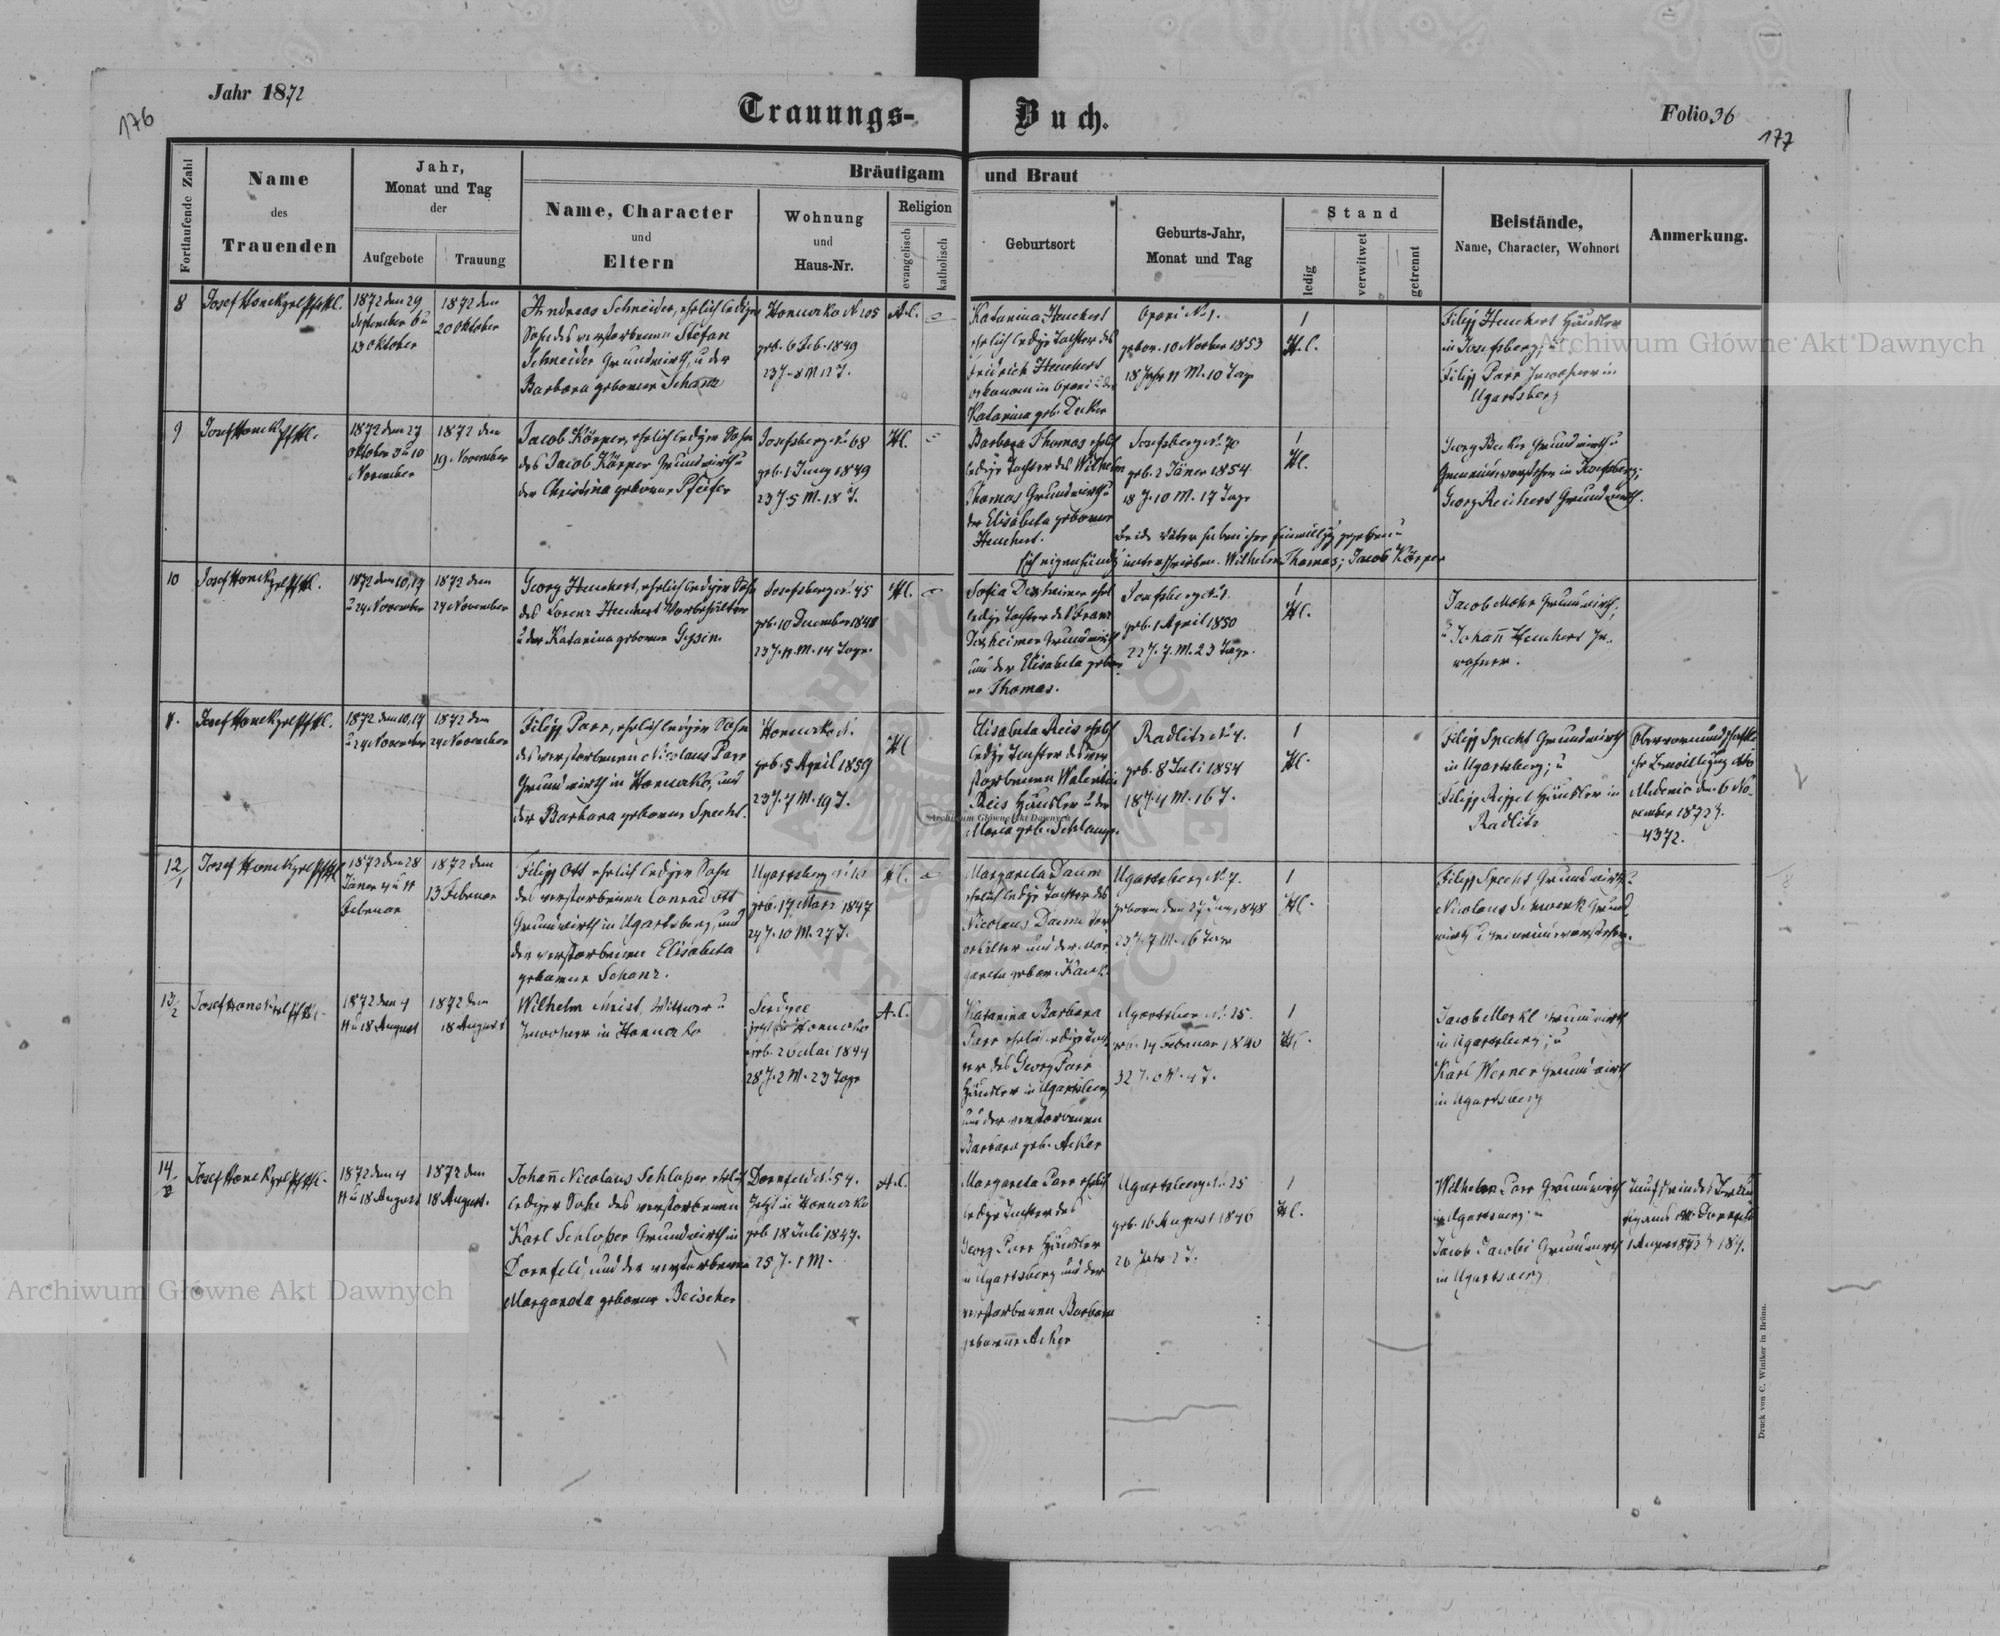 Jahr 1872
176
Trauungs-
Buch.
Folio 36
177
Fortlaufende Zahl
Name
des
Trauenden
Jahr,
Monat und Tag
der
Aufgebote
Trauung
Bräutigam
und Braut
Name, Character
und
Eltern
Wohnung
und
Haus-Nr.
Religion
evangelisch
katholisch
Geburtsort
Geburts-Jahr,
Monat und Tag
Stand
ledig
verwitwet
getrennt
Beistände,
Name, Character, Wohnort
Anmerkung.
8
Josef Honek
1872 den 29
September 6 u
13 Oktober
1872 den
20 Oktober
Andreas Schneider, ehelich lediger
Sohn des verstorbenen Stefan
Schneider Grundwirth, u der
Barbara geborene Schanz
Hornucko N 105
geb. 6 Feb. 1849
23 J. 8 M. 12 T.
A.C.
Katarina Heuchert
ehelich ledige Tochter des
Fridrich Heuchert
Oekonom in Opari u der
Katarina geb. Decker
Opari No 1.
gebor. 10 November 1853
18 Jahr 11 M. 10 Tag
1
H.C.
Filipp Heuchert Häusler
in Josefsberg; u
Filipp Parr Inwohner in
Ugartsberg
9
Josef Honek
1872 den 27
Oktober 3 u 10
November
1872 den
19. November
Jacob Körper, ehelich lediger Sohn
des Jacob Körper Grundwirth u
der Christina geborene Pfeifer
Josefsberg N. 68
geb. 1 Juny 1849
23 J. 5 M. 18 T.
H.C.
Barbara Thomas ehelich
ledige Tochter des Wilhelm
Thomas Grundwirth u
der Elisabeta geborene
Heuchert.
Josefsberg N. 70
geb. 2 Jäner 1854
18 J. 10 M. 17 Tage
Beide Väter haben ihre Einwilligung gegeben u
sich eigenhändig unterschrieben. Wilhelm Thomas; Jacob Körper
1
H.C.
Georg Becker Grundwirth u
Gemeindevorsteher in Josefsberg;
Georg Reichert Grundwirth.
10
Josef Honek
1872 den 10, 17
u 24 November
1872 den
24 November
Georg Heuchert, ehelich lediger Sohn
des Lorenz Heuchert Vorbehälter
u der Katarina geborene Gysin.
Josefsberg N. 45
geb. 10 December 1848
23 J. 11. M. 14 Tage.
H.C.
Sofia Dexheimer ehel
ledige Tochter des Franz
Dexheimer Grundwirth
und der Elisabeta gebor
ne Thomas.
geb. 1 April 1850
22 J. 7. M. 23 Tage.
1
H.C.
Jacob Mohr Grundwirth,
u Johann Heuchert In-
wohner.
Josef Honek
1872 den 10, 17
u 24 November
1872 den
24 November
Filipp Parr, ehelich lediger Sohn
des verstorbenen Nicolaus Parr
Grundwirth in Hornucko, und
der Barbara geborene Specht.
Hornucko N.
geb. 5 April 1859
23 J. 7 M. 19 T.
H.C.
Elisabeta Reis ehelich
ledige Tochter des ver
storbenen Valentin
Reis Häusler u der
Maria geb. Schlamp.
Radlitz N. 4.
geb. 8 Juli 1854
18 J. 4 M. 16 T.
1
H.C.
Filipp Specht Grundwirth
in Ugartsberg; u
Filipp Rippel Häusler in
Radlitz
Obervormundschaftli
che Bewilligung dto
Medenice den 6 No-
vember 1872 Z.
4372.
12/1
Josef Honek
1872 den 28
Jäner 4 u 11
Februar
1872 den
13 Februar
Filipp Ott ehelich lediger Sohn
des verstorbenen Conrad Ott
Grundwirth in Ugartsberg, und
der verstorbenen Elisabeta
geborene Schanz.
geb. 17 März 1847
24 J. 10 M. 27 T.
H.C.
Margareta Daum
ehelich ledige Tochter des
Nicolaus Daum Vor
behälter und der Mar
gareta gebor. Kauk
Ugartsberg N. 7.
geboren den 27 Juny 1848
23 J. 7 M. 16 Tage
1
H.C.
Filipp Specht Grundwirth u
Nicolaus Schwenk Grund
wirth u Gemeindevorsteher.
13/2
Josef Honek
1872 den 4
11 u 18 August
1872 den
18 August
Wilhelm Mist, Wittwer u
Inwohner in Hornucko
jetzt in Hornucko
geb. 26 Mai 1844
28 J. 2 M. 23 Tage
A.C.
Katarina Barbara
Parr ehelich ledige Toch
ter des Georg Parr
Häusler in Ugartsberg
und der verstorbenen
Barbara geb. Acker
Ugartsberg N. 25.
geb. 14 Februar 1840
32 J. 6 M. 4 T.
1
H.C.
Jacob Merkl Grundwirth
in Ugartsberg; u
Karl Werner Grundwirth
in Ugartsberg
14
Josef Honek
1872 den 4
11 u 18 August
1872 den
18 August.
Johann Nicolaus Schloßer ehelich
lediger Sohn des verstorbenen
Karl Schloßer Grundwirth in
Dornfeld, und der verstorbenen
Margareta geborene Beischer
Dornfeld N. 54.
Jetzt in Hornucko
geb 18 Juli 1847.
25 J. 1 M.
A.C.
Margareta Parr ehelich
ledige Tochter des
Georg Parr Häusler
in Ugartsberg und der
verstorbenen Barbara
geborene Acker
Ugartsberg N. 25
geb. 16 August 1846
26 Jahr 2 T.
1
H.C.
Wilhelm Parr Grundwirth
in Ugartsberg; u
Jacob Jacobi Grundwirth
in Ugartsberg
1 August 872
Druck von C. Winiker in Brünn.
Archiwum Główne Akt Dawnych
Archiwum Główne Akt Dawnych
Archiwum Główne Akt Dawnych